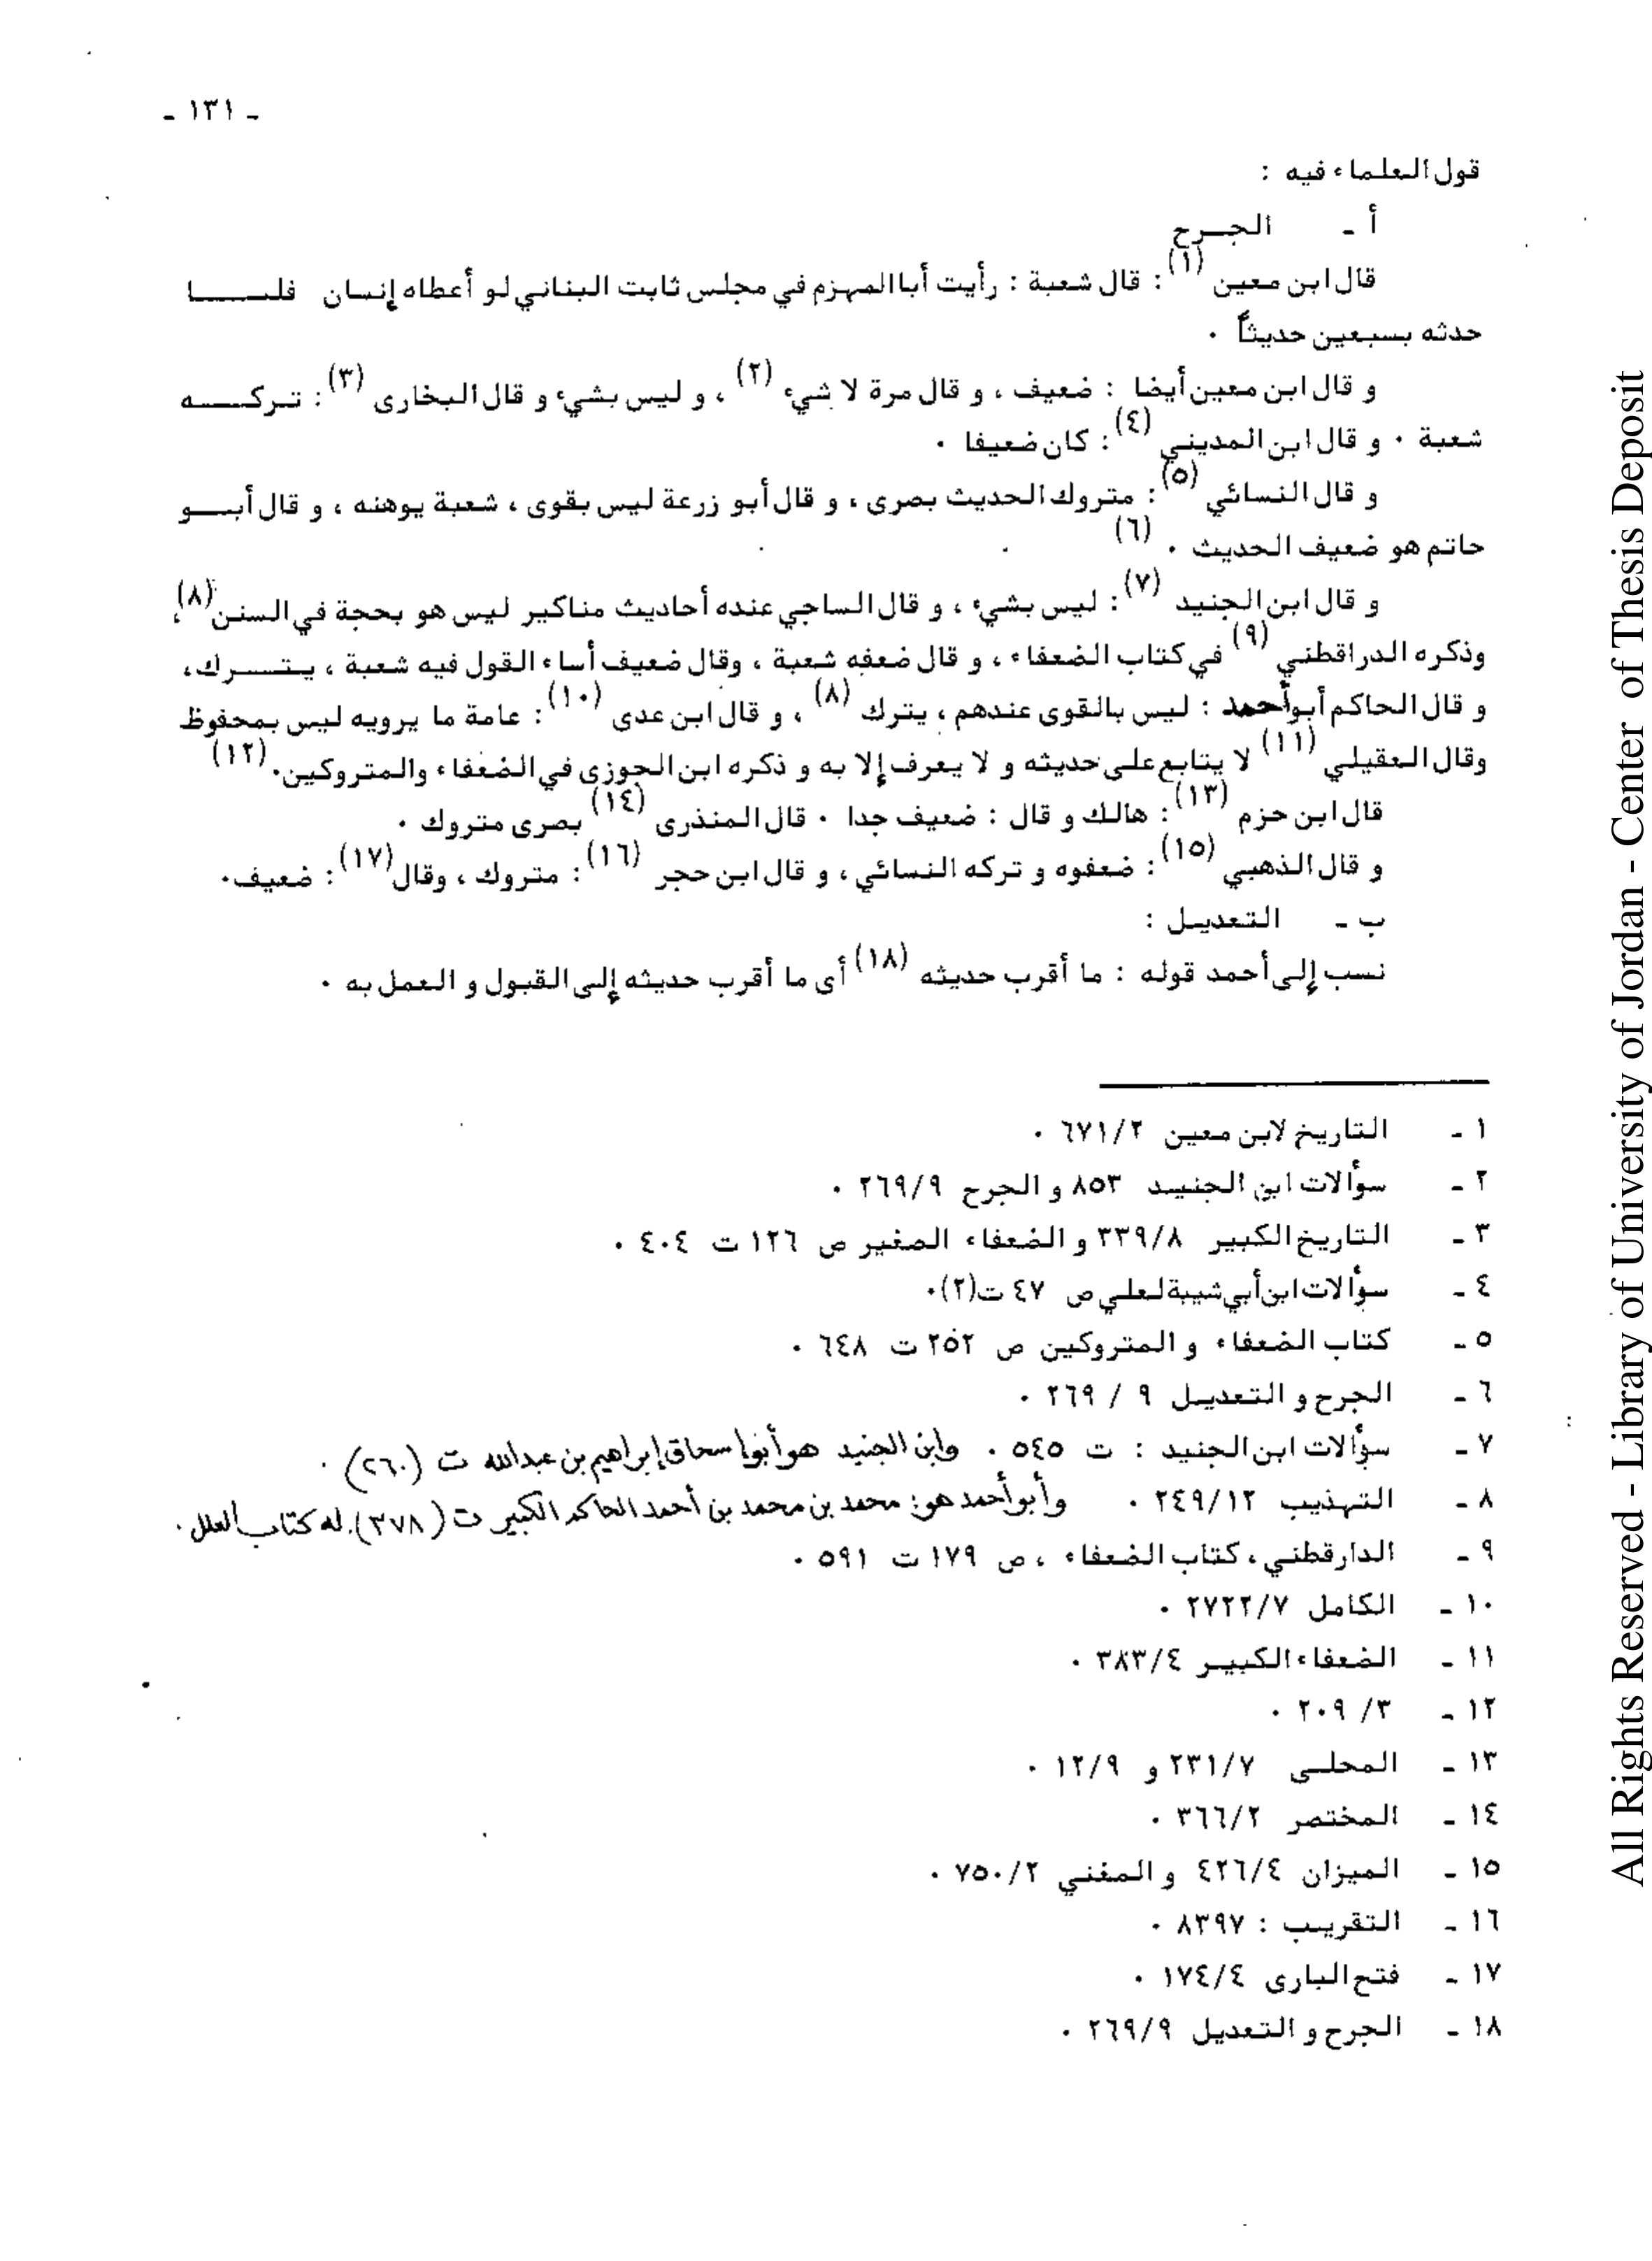 - ١٣١ -
قول العلماء فيه :
أ - الجـــرح
قال ابن معين (١) : قال شعبة : رأيت أبا المهزم في مجلس ثابت البناني لو أعطاه إنسان فلســــا
حدثه بسبعين حديثاً .
و قال ابن معين أيضا : ضعيف ، و قال مرة لا شيء (٢) ، و ليس بشيء و قال البخارى (٣) : تـركـــــه
شعبة . و قال ابن المديني (٤) : كان ضعيفا .
و قال النسائي (٥) : متروك الحديث بصرى ، و قال أبو زرعة ليس بقوى ، شعبة يوهنه ، و قال أبـــو
حاتم هو ضعيف الحديث . (٦)
و قال ابن الجنيد (٧) : ليس بشيء ، و قال الساجي عنده أحاديث مناكير ليس هو بحجة في السنن (٨) ،
وذكره الدراقطني (٩) في كتاب الضعفاء ، و قال ضعفه شعبة ، وقال ضعيف أساء القول فيه شعبة ، يـتــــرك ،
و قال الحاكم أبو أحمد : ليس بالقوى عندهم ، يترك (٨) ، و قال ابن عدى (١٠) : عامة ما يرويه ليس بمحفوظ
وقال العقيلي (١١) لا يتابع على حديثه و لا يعرف إلا به و ذكره ابن الجوزى في الضعفاء والمتروكين . (١٢)
قال ابن حزم (١٣) : هالك و قال : ضعيف جدا . قال المنذرى (١٤) بصرى متروك .
و قال الذهبي (١٥) : ضعفوه و تركه النسائي ، و قال ابن حجر (١٦) : متروك ، وقال (١٧) : ضعيف .
ب - التعديـل :
نسب إلى أحمد قوله : ما أقرب حديثه (١٨) أى ما أقرب حديثه إلى القبول و العمل به .
١ - التاريخ لابن معين ٦٧١/٢ .
٢ - سؤالات ابن الجنيـد ٨٥٣ و الجرح ٢٦٩/٩ .
٣ - التاريخ الكبير ٣٣٩/٨ و الضعفاء الصغير ص ١٢٦ ت ٤٠٤ .
٤ - سؤالات ابن أبي شيبة لعلي ص ٤٧ ت (٢) .
٥ - كتاب الضعفاء و المتروكين ص ٢٥٢ ت ٦٤٨ .
٦ - الجرح و التعديـل ٩ / ٢٦٩ .
٧ - سؤالات ابن الجنيد : ت ٥٤٥ . وابن الجنيد هو أبو إسحاق إبراهيم بن عبدالله ت (٢٦٠) .
٨ - التهذيب ٢٤٩/١٢ . وأبو أحمد هو : محمد بن محمد بن أحمد الحاكم الكبير ت (٣٧٨) . له كتاب العلل .
٩ - الدارقطني ، كتاب الضعفاء ، ص ١٧٩ ت ٥٩١ .
١٠ - الكامل ٢٧٢٢/٧ .
١١ - الضعفاء الكبيـر ٣٨٣/٤ .
١٢ - ٣/ ٢٠٩ .
١٣ - المحلـى ٢٣١/٧ و ١٢/٩ .
١٤ - المختصر ٣٦٦/٢ .
١٥ - الميزان ٤٢٦/٤ و المغني ٧٥٠/٢ .
١٦ - التقريـب : ٨٣٩٧ .
١٧ - فتح البارى ١٧٤/٤ .
١٨ - الجرح و التعديل ٢٦٩/٩ .
All Rights Reserved - Library of University of Jordan - Center of Thesis Deposit